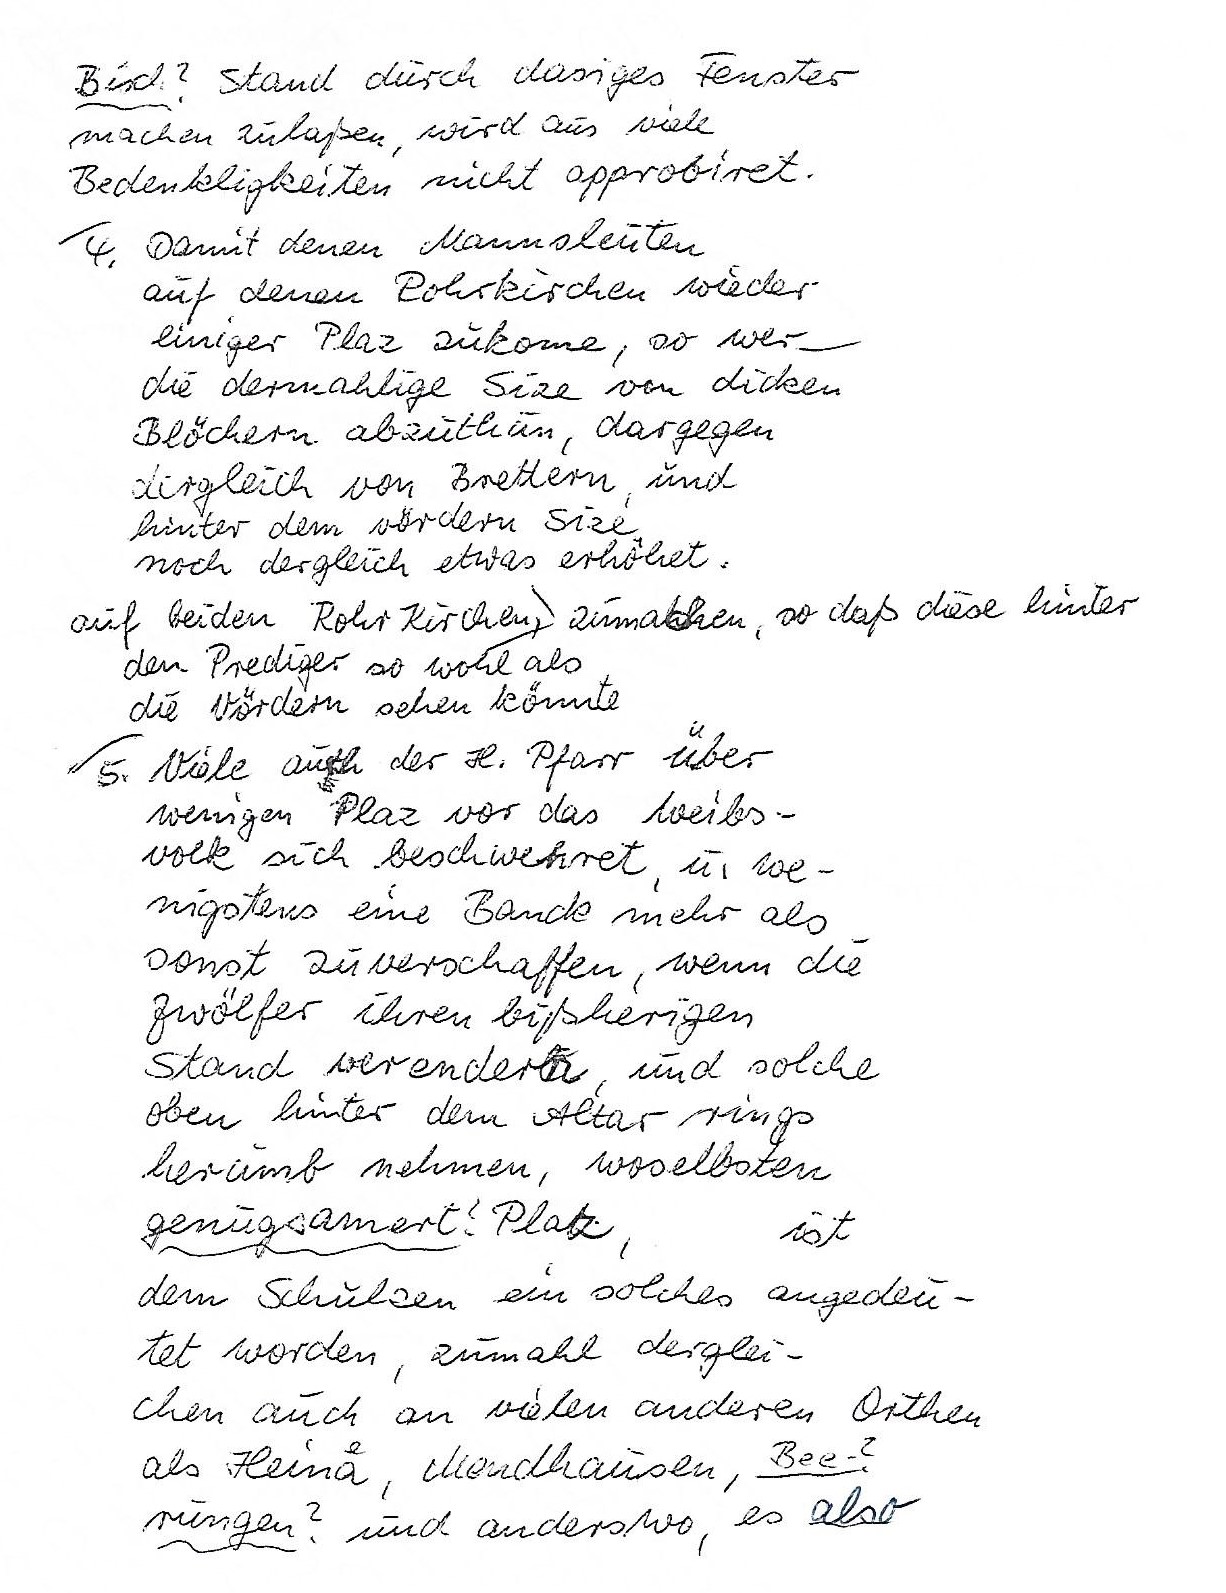 Bisch? Stand durch dasiges Fenster
machen zulaßen, wird aus viele
Bedenkligkeiten nicht approbiret.
4. Damit denen Mannsleuten
auf denen Rohrkirchen wieder
einiger Plaz zukome, so wer—
die dermahlige Size von dicken
Blöchern abzuthun, dargegen
dergleich von Brettern, und
hinter dem vördern Size
noch dergleich etwas erhöhet.
auf beiden Rohr Kirchen, zumachen, so daß diese hinter
den Prediger so wohl als
die Vördern sehen könnte
5. Viele auch der H. Pfarr über
wenigen Plaz vor das Weibs-
volk sich beschwehret, u. we-
nigstens eine Banck mehr als
sonst zuverschaffen, wenn die
Zwölfer ihren bißherigen
Stand verendern, und solche
oben hinter dem Altar rings
herumb nehmen, woselbsten
genugsamert! Platz, ist
dem Schulzen ein solches angedeu-
tet worden, zumahl derglei-
chen auch an vielen anderen Orthen
als Heina, Mendhausen, Bee-?
rungen? und anderswo, es also